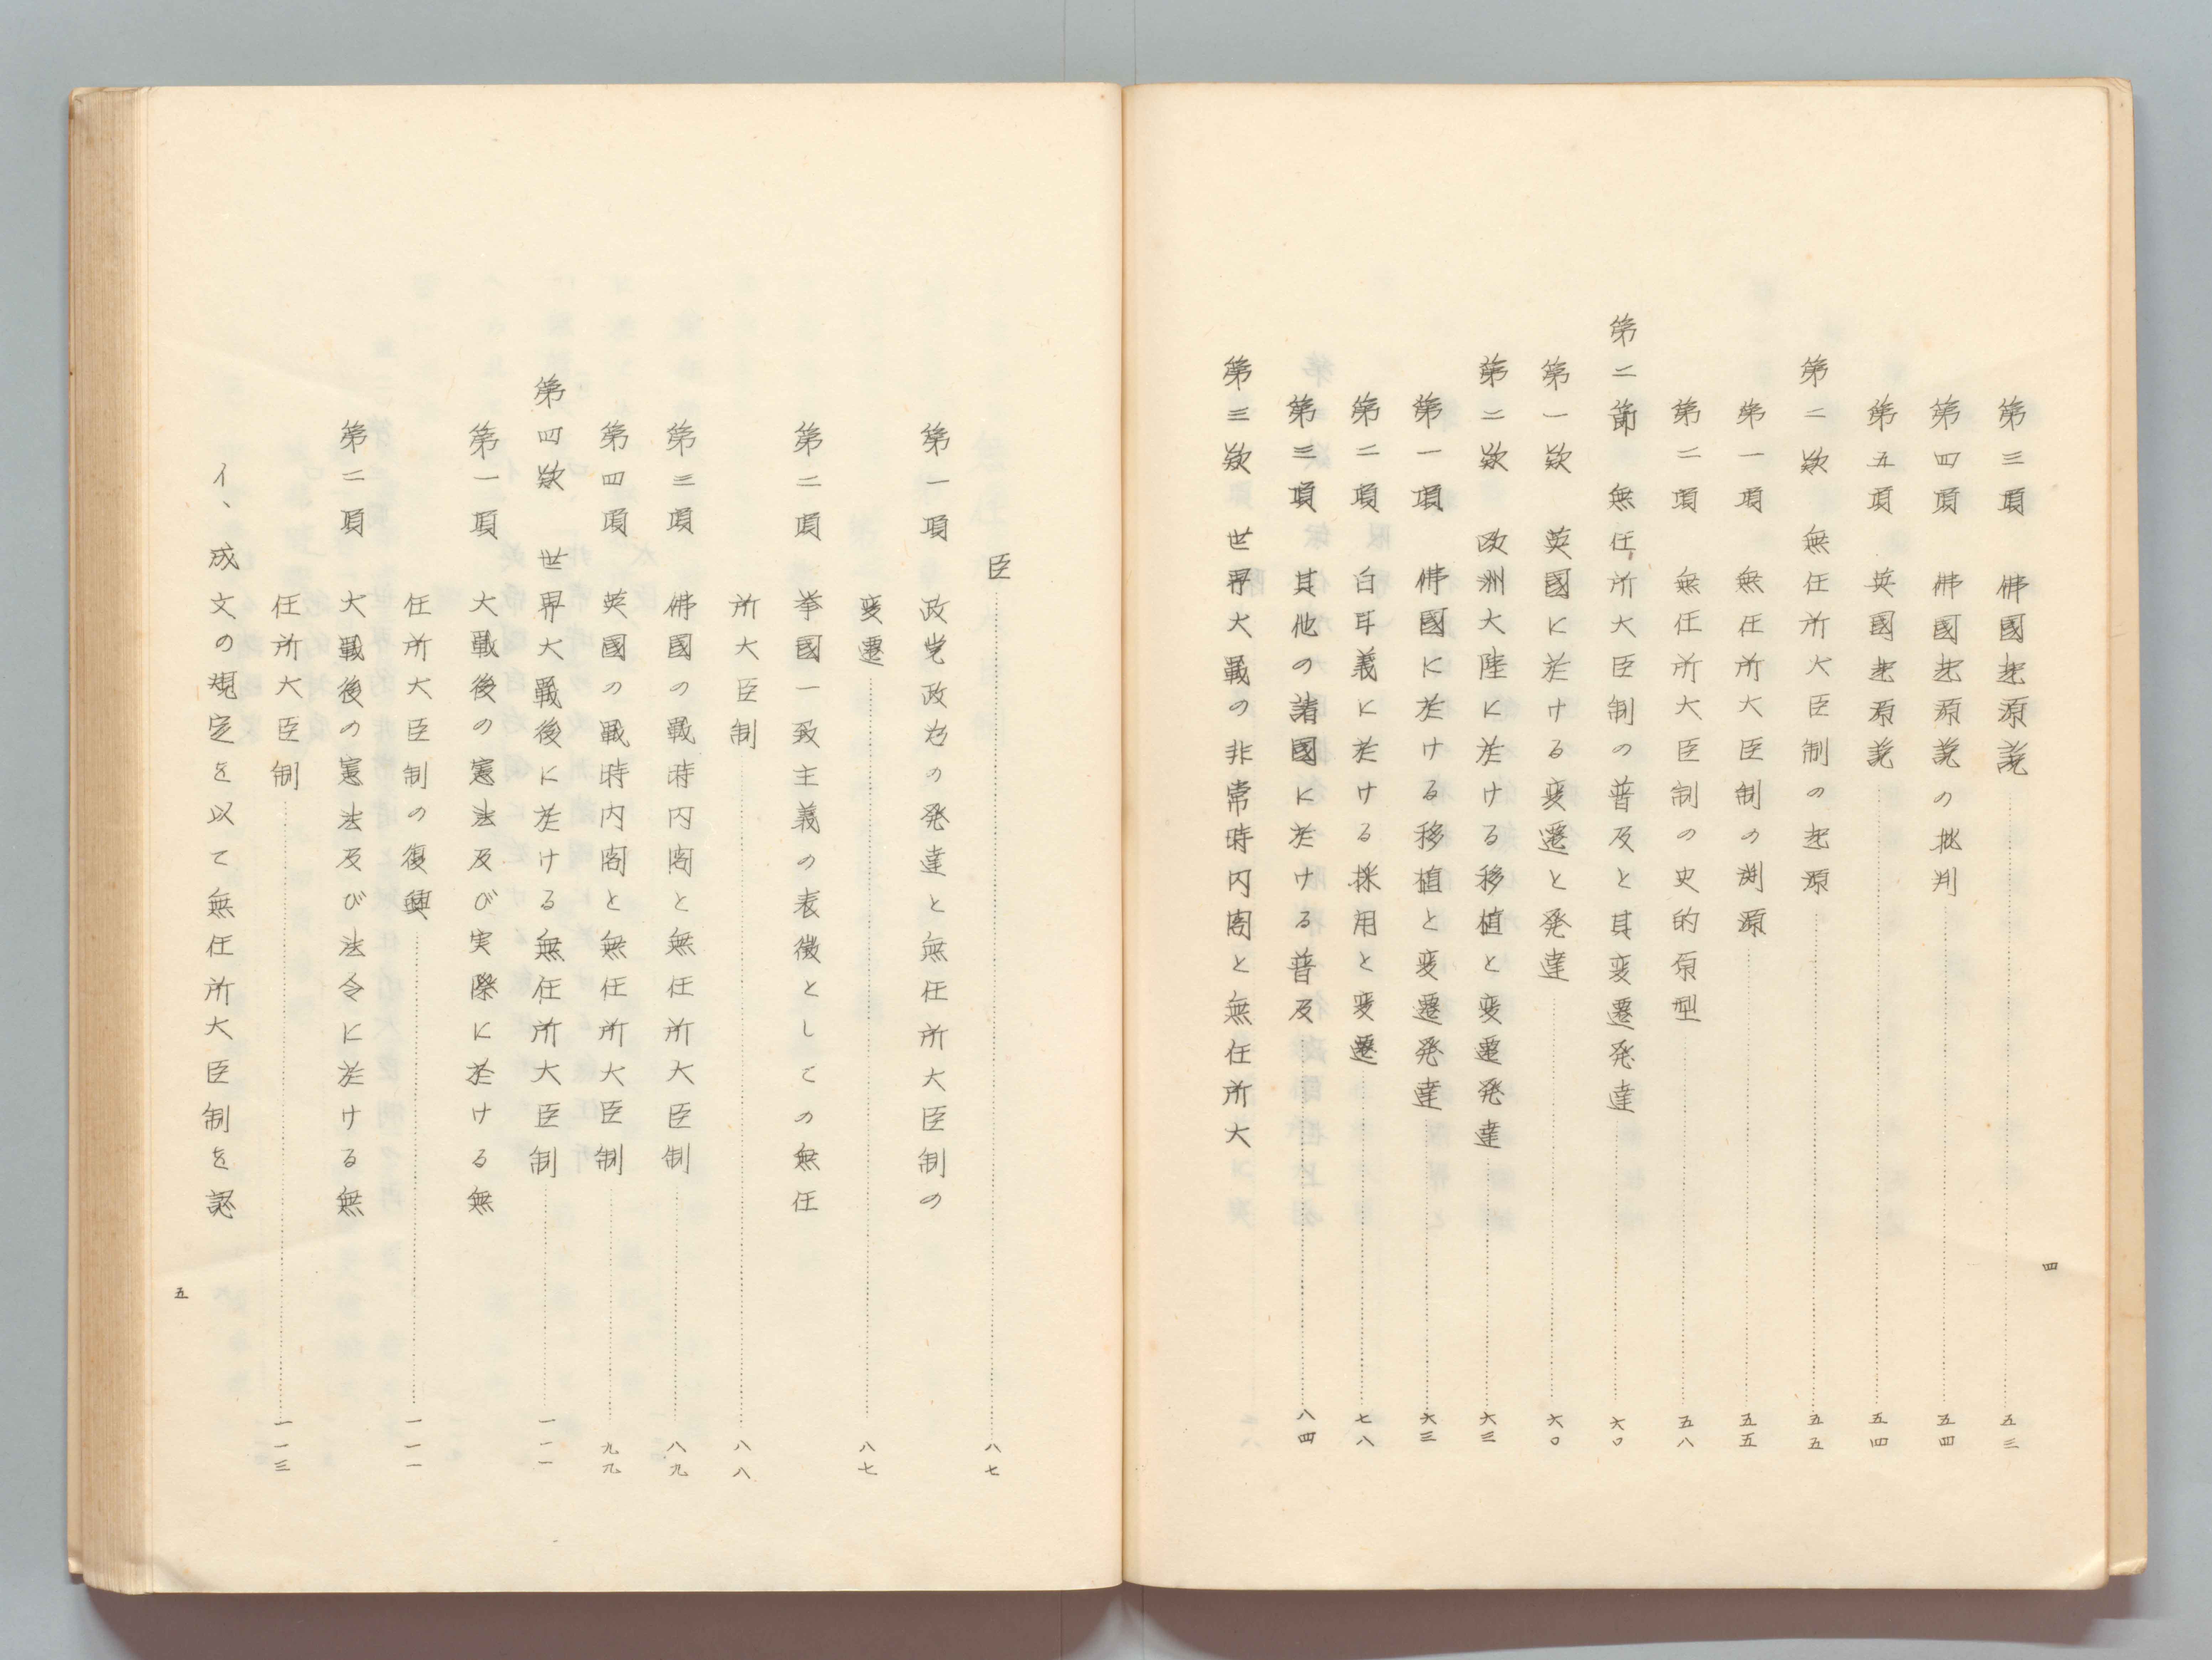 四
第三項　佛國起源説……五三
第四項　佛國起源説の批判……五四
第五項　英國起源説……五四
第二欵　無任所大臣制の起源……五五
第一項　無任所大臣制の渕源……五五
第二項　無任所大臣制の史的原型……五八
第二節　無任所大臣制の普及と其変遷発達……六〇
第一欵　英國に於ける変遷と発達……六〇
第二欵　欧洲大陸に於ける移植と変遷発達……六三
第一項　佛國に於ける移植と変遷発達……六三
第二項　白耳義に於ける採用と変遷……七八
第三項　其他の諸國に於ける普及……八四
第三欵　世界大戰の非常時内閣と無任所大
臣……八七
第一項　政党政治の発達と無任所大臣制の
変遷……八七
第二項　挙國一致主義の表徴としての無任
所大臣制……八八
第三項　佛國の戰時内閣と無任所大臣制……八九
第四項　英國の戰時内閣と無任所大臣制……九九
第四欵　世界大戰後に於ける無任所大臣制……一一一
第一項　大戰後の憲法及び実際に於ける無
任所大臣制の復興……一一一
第二項　大戰後の憲法及び法令に於ける無
任所大臣制……一一三
イ、成文の規定を以て無任所大臣制を認
五